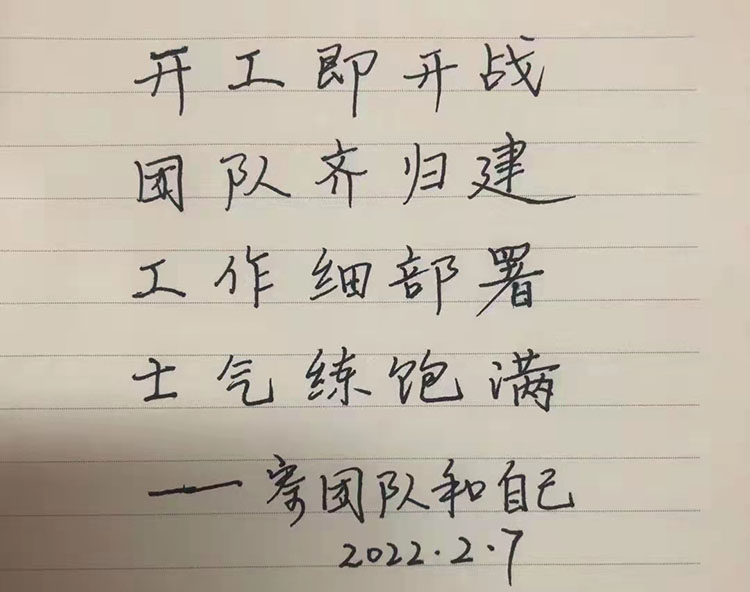 开工即开战
团队齐归建
工作细部署
士气练饱满
——寄团队和自己
2022.2.7